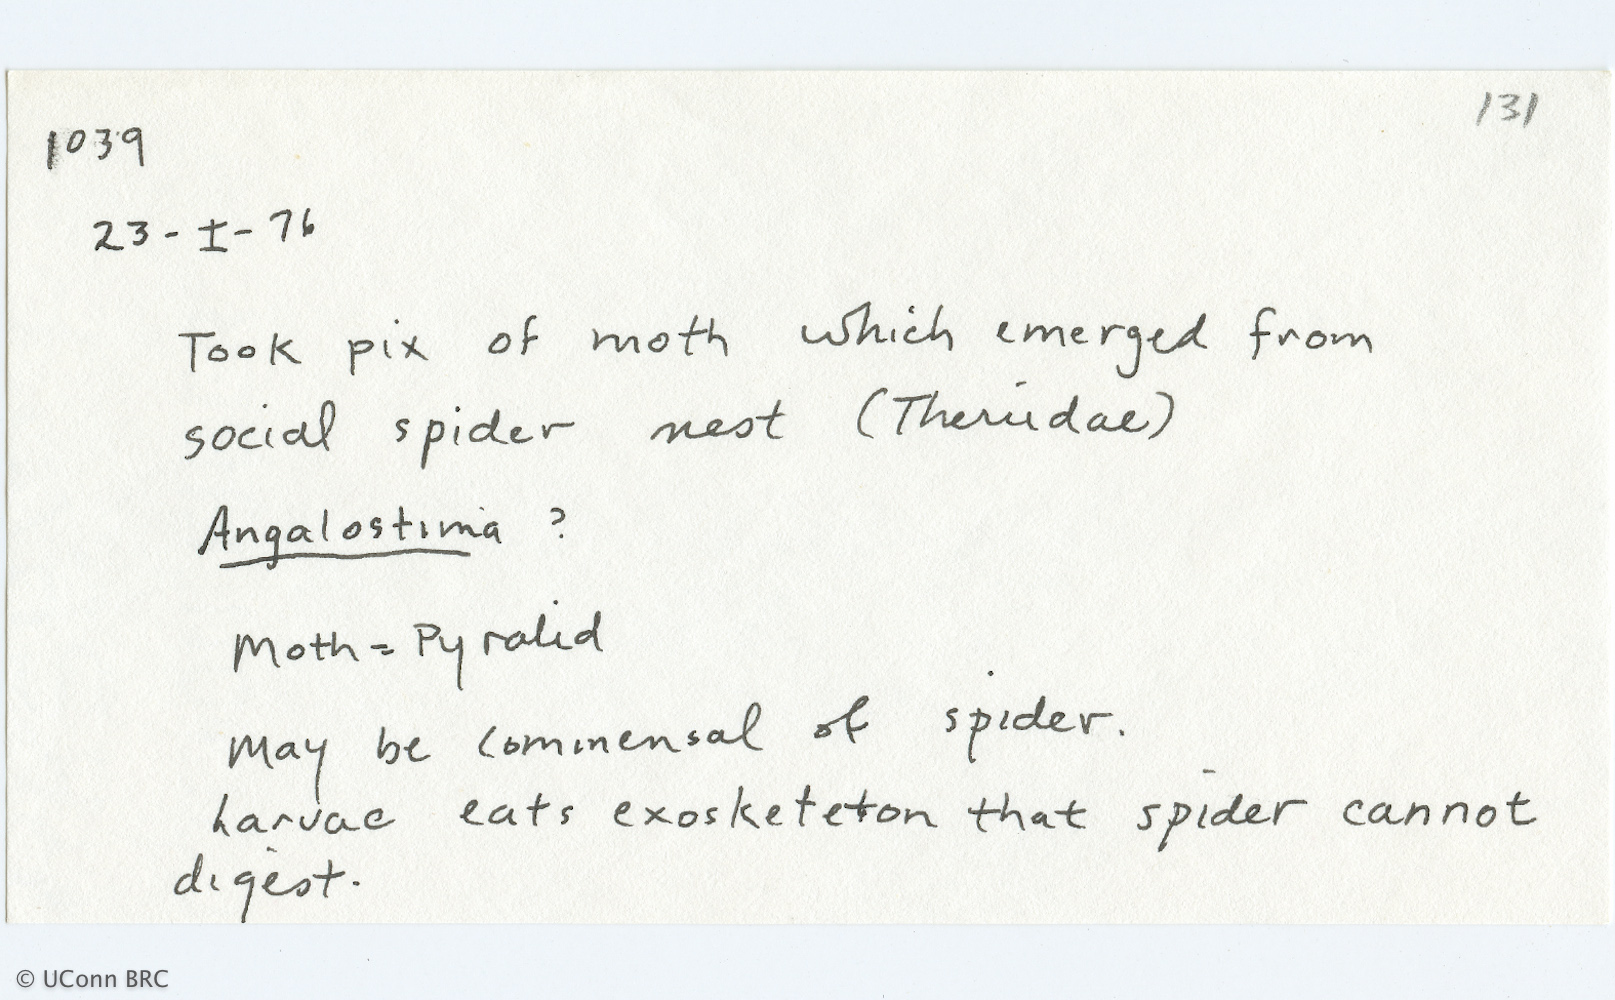 131
1039
23-I-76
Took pix of moth which emerged from
social spider nest (Theriidae)
Angalostima ?
Moth = Pyralid
May be commensal of spider.
Larvae eats exosketeton that spider cannot
digest.
© UConn BRC